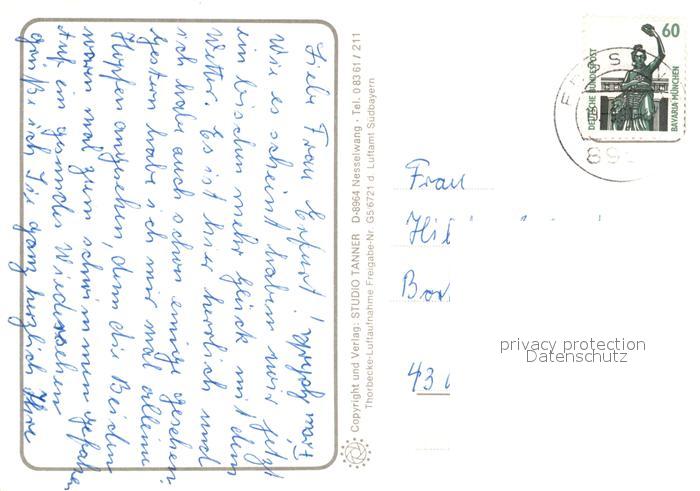 Liebe Frau Erfurt!
Wie es scheint haben wir jetzt
ein bisschen mehr Glück mit dem
Wetter. Es ist hier herrlich und
ich habe auch schon einige gesehen.
Gestern habe ich mir mal allein
Hopfen angesehen, denn die Beiden
waren mal zum schwimmen gefahren
Auf ein gesundes Wiedersehen
grüße ich Sie ganz herzlich Ihre
Copyright und Verlag: STUDIO TANNER D-8964 Nesselwang · Tel. 0 83 61 / 211
Thorbecke-Luftaufnahme Freigabe-Nr. G5/6721 d. Luftamt Südbayern
60
DEUTSCHE BUNDESPOST
BAVARIA MÜNCHEN
Frau
Hil
Bor
43
privacy protection
Datenschutz